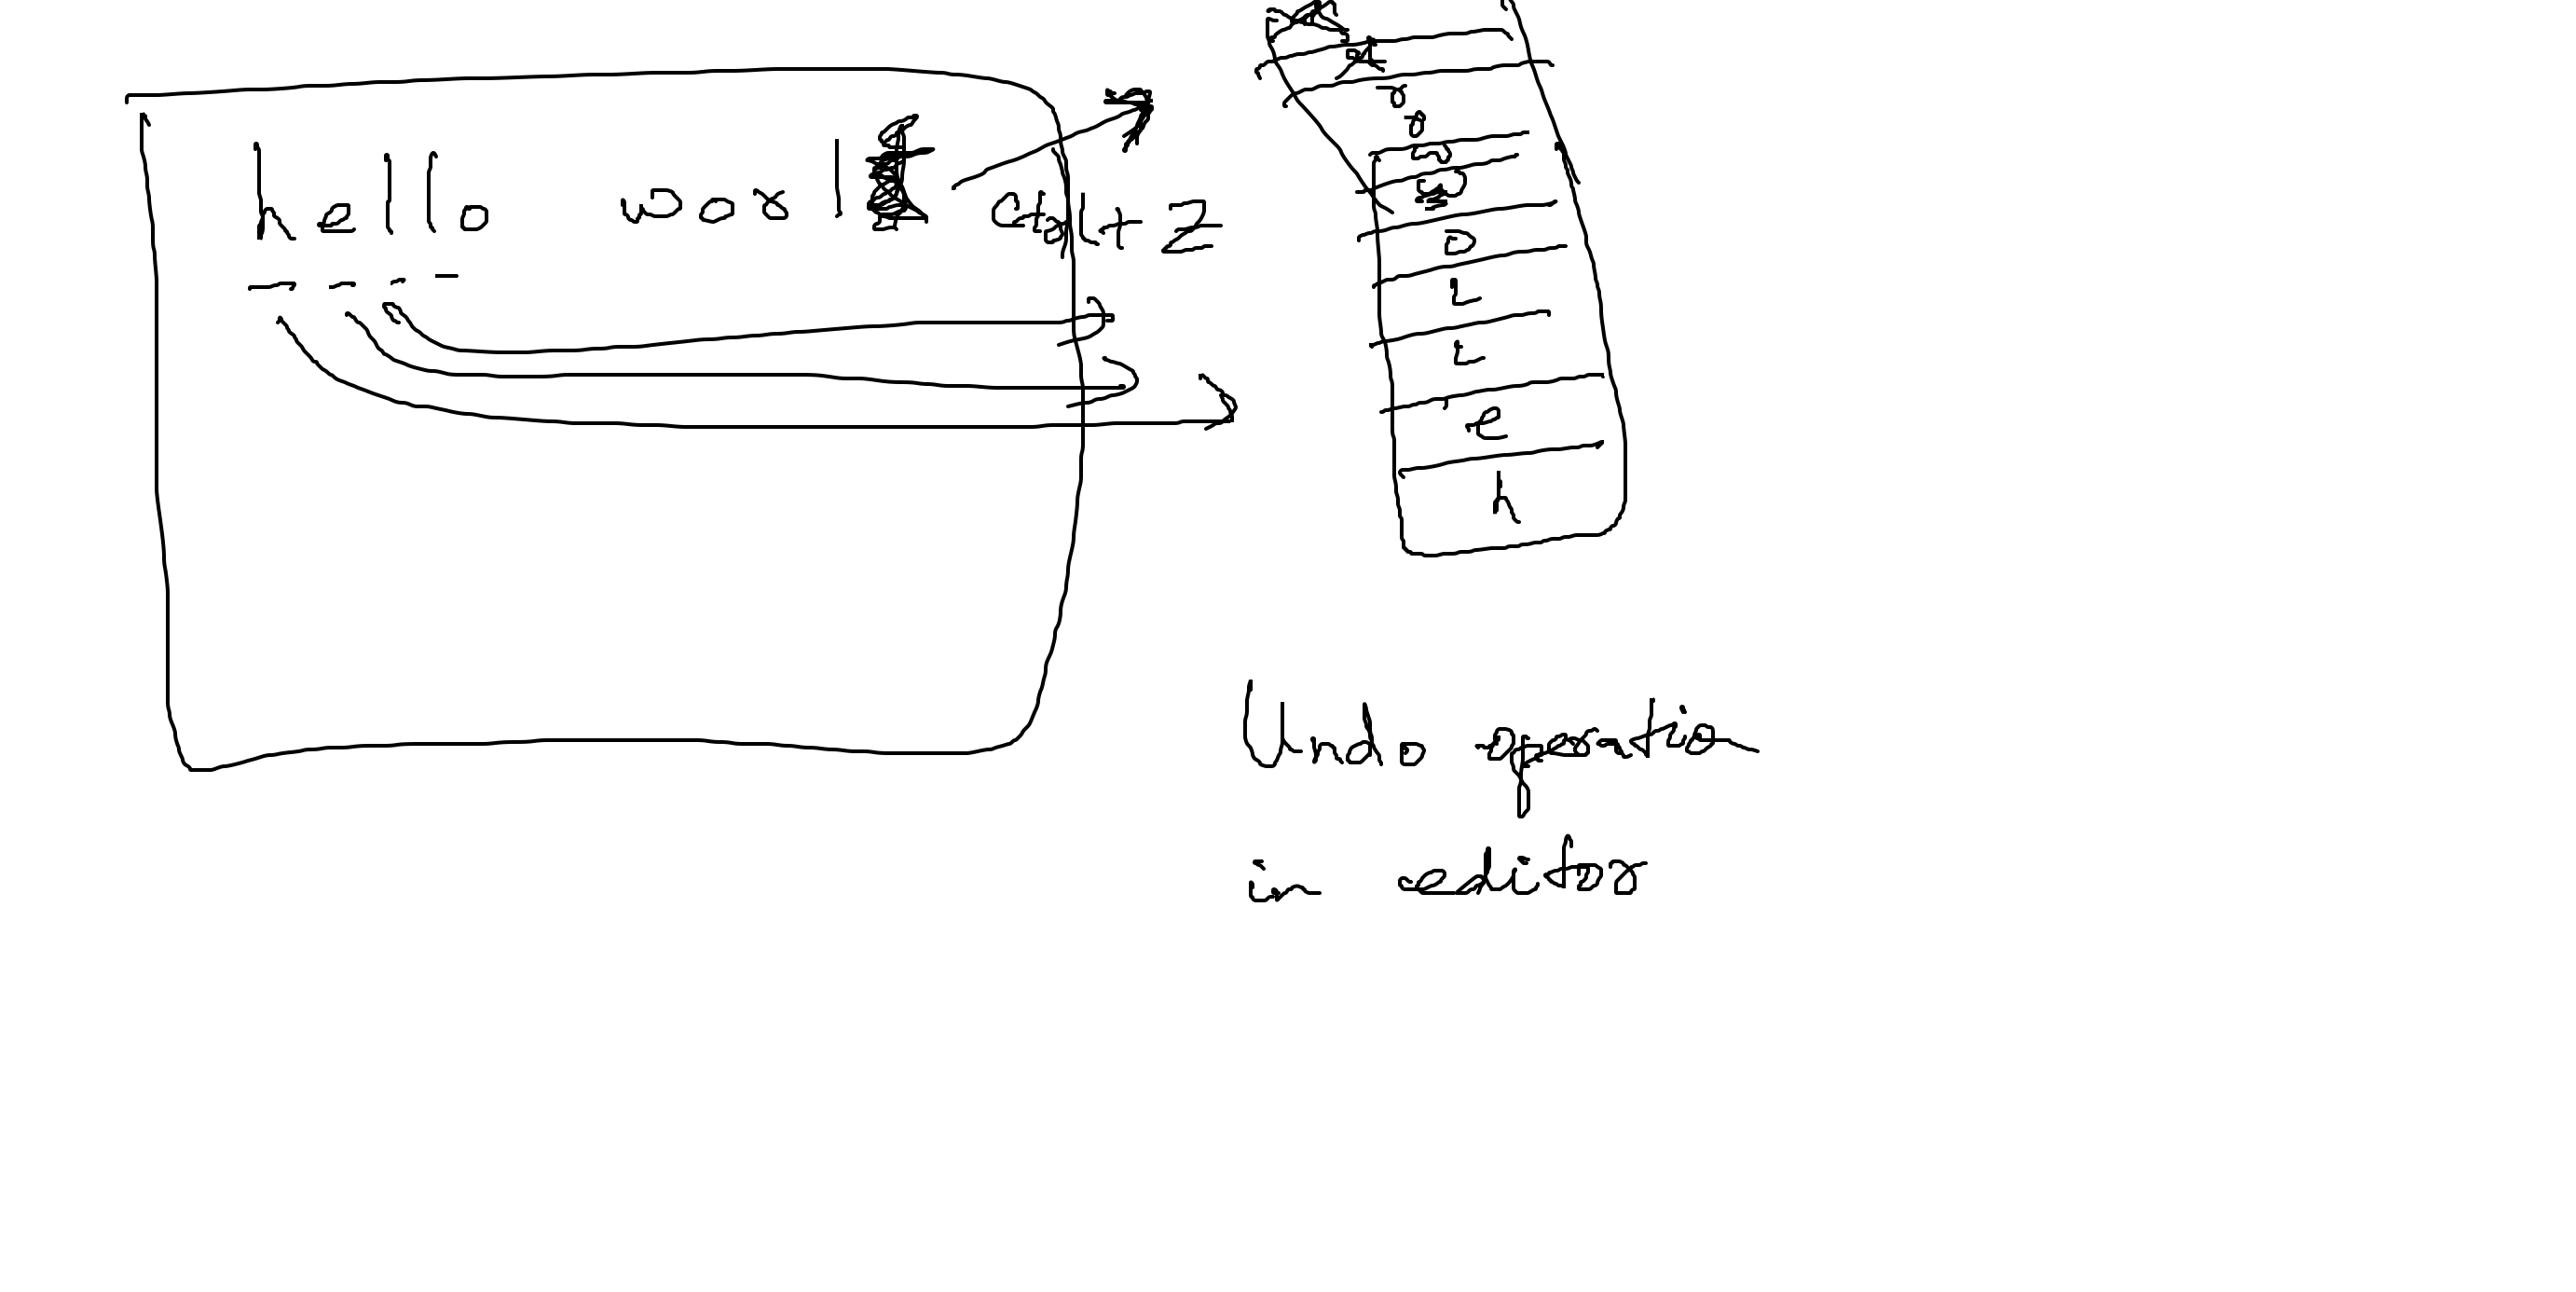 hello worl
Ctrl+Z
r
o
w
O
L
L
e
h
Undo operation
in editor